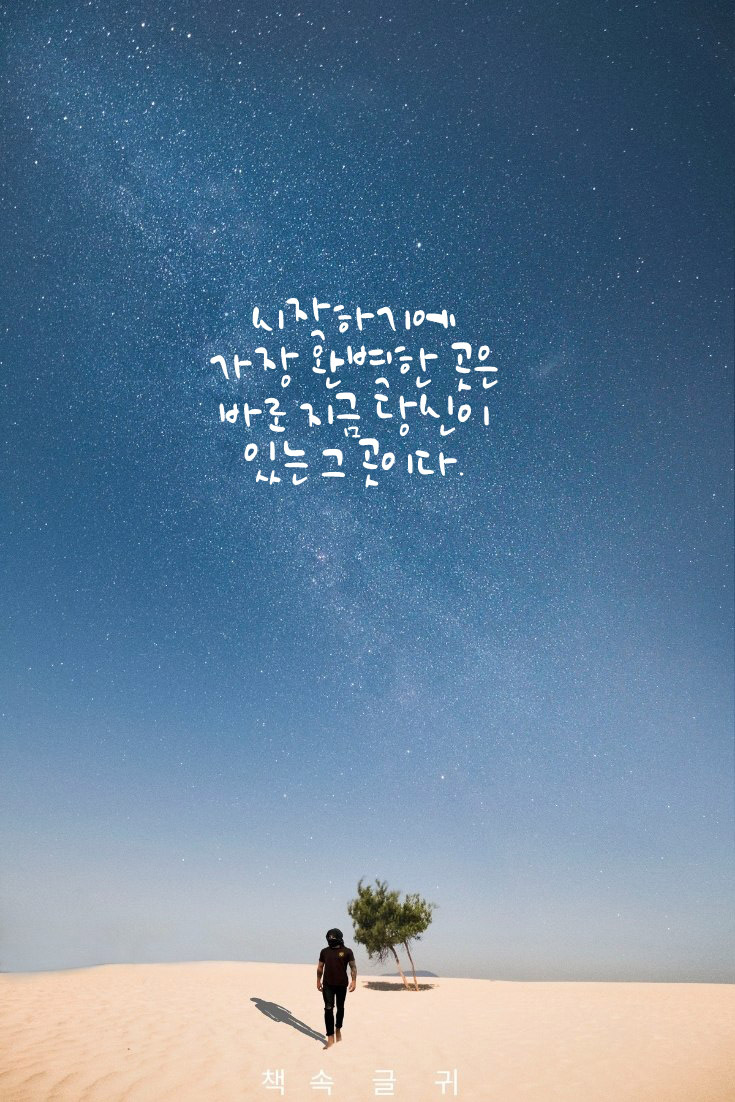 시작하기에
가장 완벽한 곳은
바로 지금 당신이
있는 그 곳이다.
책 속 글 귀